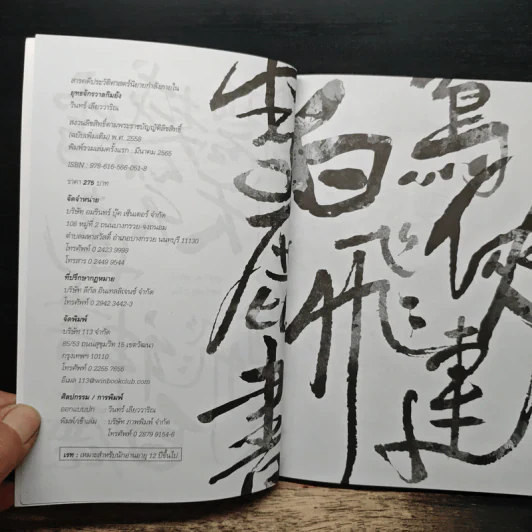 สารคดีประวัติศาสตร์นิยายกำลังภายใน
ยุทธจักรวาลกิมย้ง
วินทร์ เลียววาริณ
สงวนลิขสิทธิ์ตามพระราชบัญญัติลิขสิทธิ์
(ฉบับเพิ่มเติม) พ.ศ. 2558
พิมพ์รวมเล่มครั้งแรก : มีนาคม 2565
ISBN : 978-616-566-051-8
ราคา 275 บาท
จัดจำหน่าย
บริษัท อมรินทร์ บุ๊ค เซ็นเตอร์ จำกัด
108 หมู่ที่ 2 ถนนบางกรวย-จงถนอม
ตำบลมหาสวัสดิ์ อำเภอบางกรวย นนทบุรี 11130
โทรศัพท์ 0 2423 9999
โทรสาร 0 2449 9544
ที่ปรึกษากฎหมาย
บริษัท ลีกัล อินเทลลิเจนซ์ จำกัด
โทรศัพท์ 0 2942 3442-3
จัดพิมพ์
บริษัท 113 จำกัด
65/53 ถนนสุขุมวิท 15 เขตวัฒนา
กรุงเทพฯ 10110
โทรศัพท์ 0 2256 7656
อีเมล 113@winbookclub.com
ศิลปกรรม / การพิมพ์
ออกแบบปก วินทร์ เลียววาริณ
พิมพ์/เข้าเล่ม บริษัท ภาพพิมพ์ จำกัด
โทรศัพท์ 0 2879 9154-6
เรท : เหมาะสำหรับนักอ่านอายุ 12 ปีขึ้นไป
俠
白
飛
連
書